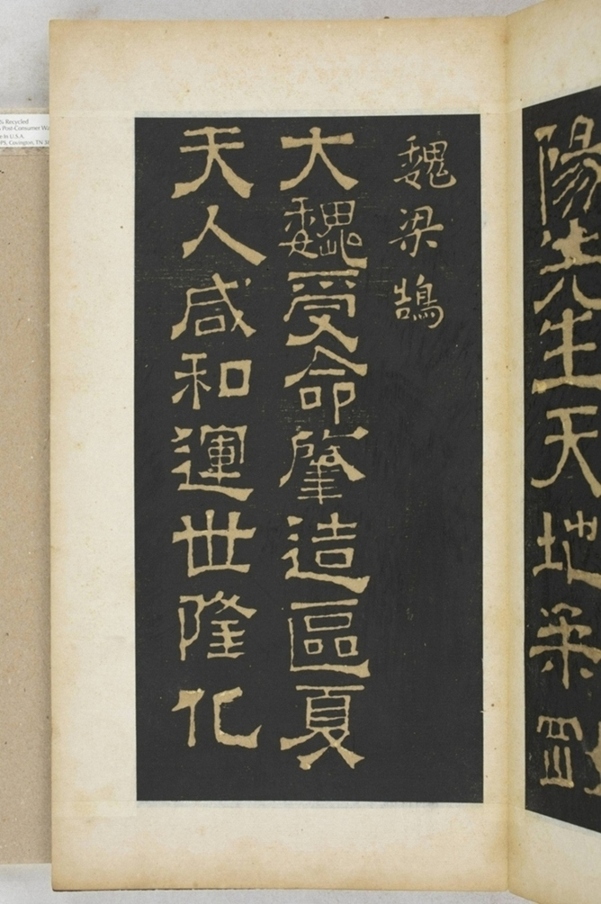 陽先生天地柔
魏梁鵠
大魏受命肇造區夏
天人咸和運世隆化
Recycled
Post-Consumer
in U.S.A.
Covington, TN